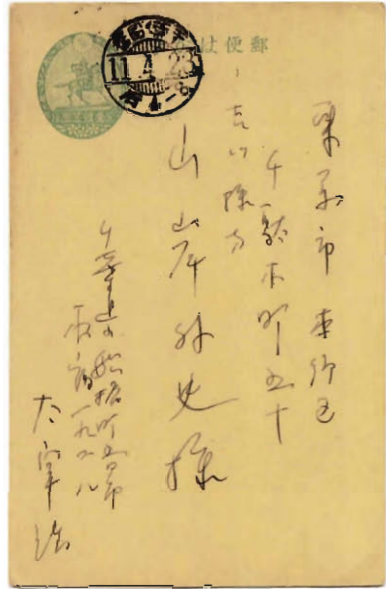 郵便はがき
11.4.23
東京市本郷区
千駄木町五十
山岸外史様
千葉県船橋町五日市
本宿一九二八
太宰治